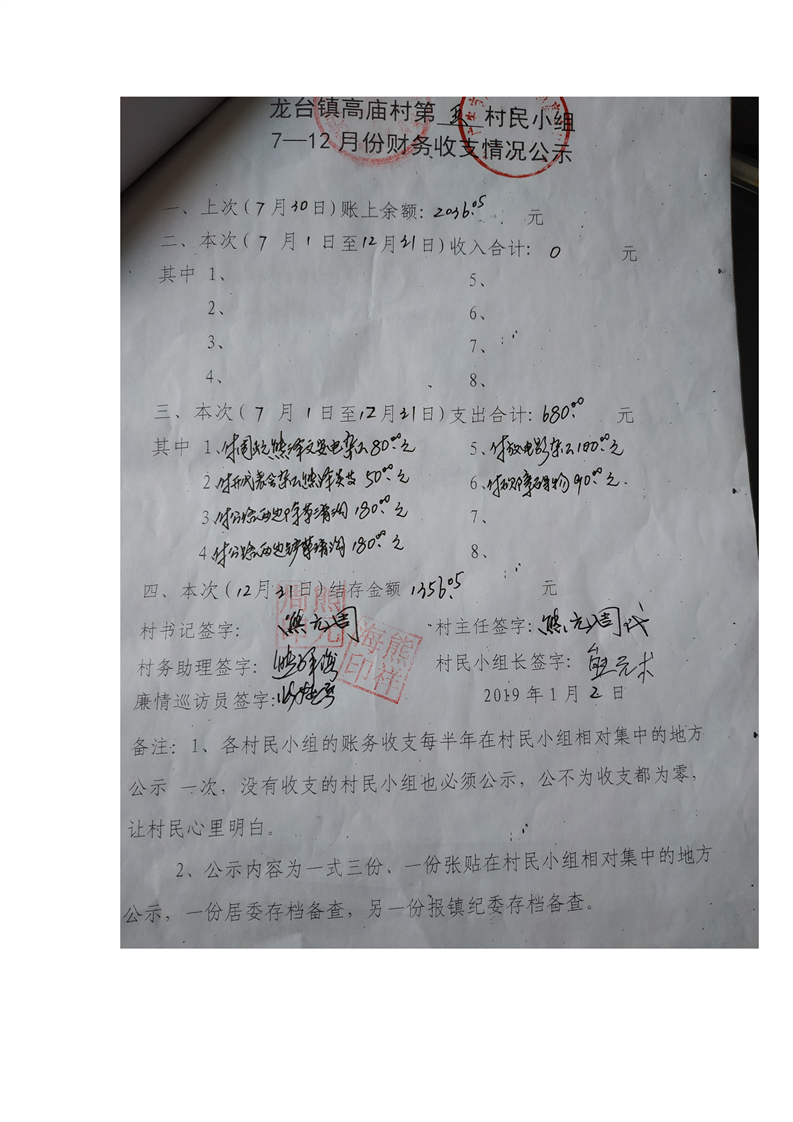 龙台镇高庙村第五村民小组
7—12月份财务收支情况公示
一、上次(7月30日)账上余额: 2036.05 元
二、本次(7月1日至12月31日)收入合计: 0 元
其中 1、 5、
2、 6、
3、 7、
4、 8、
三、本次(7月1日至12月31日)支出合计: 680.00 元
其中 1、付 80.00元 5、付放电影 100.00元
2、付开代表会 50.00元 6、付 90.00元.
3、付 清沟 180.00元 7、
4、付 清沟 180.00元 8、
四、本次(12月31日)结存金额 1356.05 元
村书记签字: 熊元周 村主任签字: 熊元周代
村务助理签字: 熊祥海 村民小组长签字: 熊元
廉情巡访员签字:
熊元周印
熊祥海印
2019年1月2日
备注: 1、各村民小组的账务收支每半年在村民小组相对集中的地方
公示 一次,没有收支的村民小组也必须公示,公不为收支都为零,
让村民心里明白。
2、公示内容为一式三份、一份张贴在村民小组相对集中的地方
公示,一份居委存档备查,另一份报镇纪委存档备查。